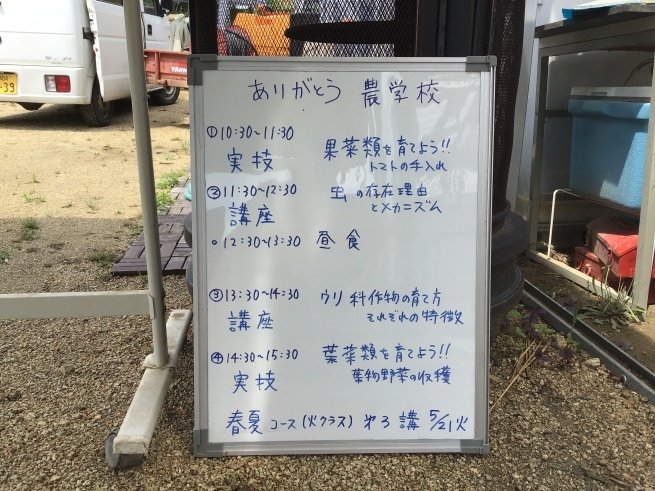 ありがとう 農学校
①10:30~11:30
実技 果菜類を育てよう!!
トマトの手入れ
②11:30~12:30 虫の存在理由
講座 とメカニズム
○12:30~13:30 昼食
③13:30~14:30 ウリ科作物の育て方
講座 それぞれの特徴
④14:30~15:30 葉菜類を育てよう!!
実技 葉物野菜の収穫
春夏コース(火クラス) 第3講 5/21火
YANM
39